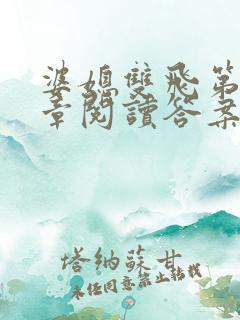 婆媳雙飛第
章閱讀答案
塔納蘇甘
未经同意禁止转载